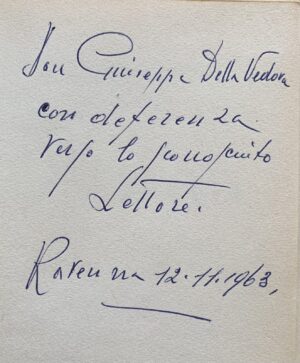 Don Giuseppe Della Vedova
con deferenza
verso lo sconosciuto
Lettore.
Ravenna 12.11.1963,